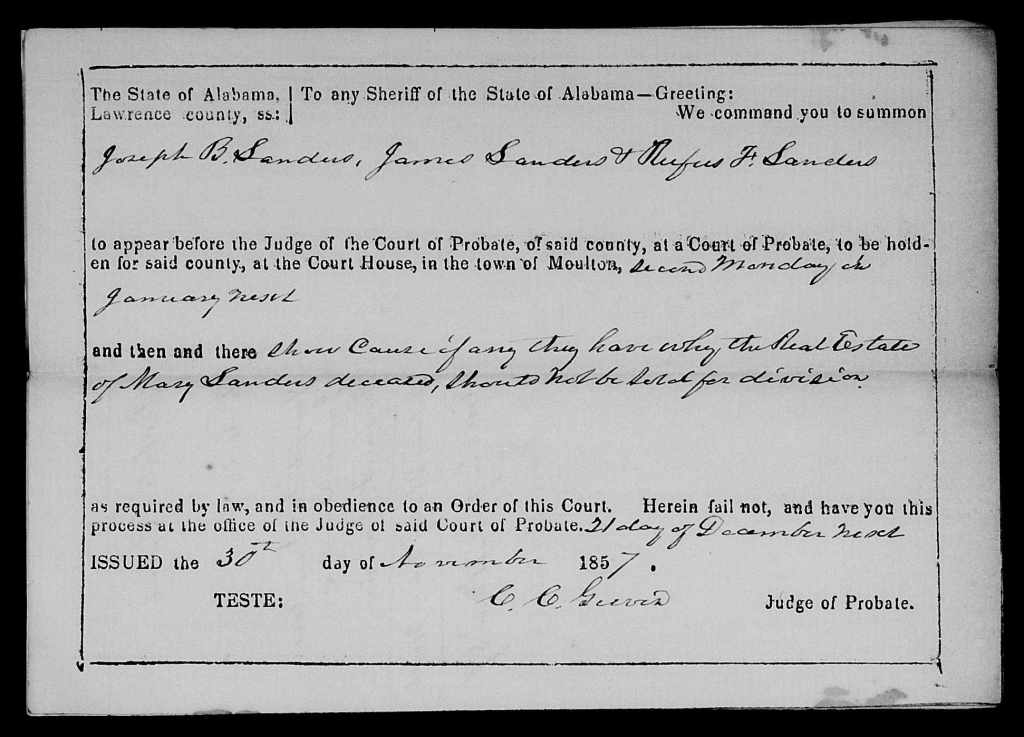 The State of Alabama, | To any Sheriff of the State of Alabama—Greeting:
Lawrence county, ss: | We command you to summon
Joseph B. Sanders, James Sanders & Rufus F. Sanders
to appear before the Judge of the Court of Probate, of said county, at a Court of Probate, to be hold-
en for said county, at the Court House, in the town of Moulton, second Monday in
January next
and then and there show Cause if any they have why the Real Estate
of Mary Sanders deceased, should not be sold for division.
as required by law, and in obedience to an Order of this Court. Herein fail not, and have you this
process at the office of the Judge of said Court of Probate. 21 day of December next
ISSUED the 30th day of November 1857.
TESTE: C. C. Judge of Probate.